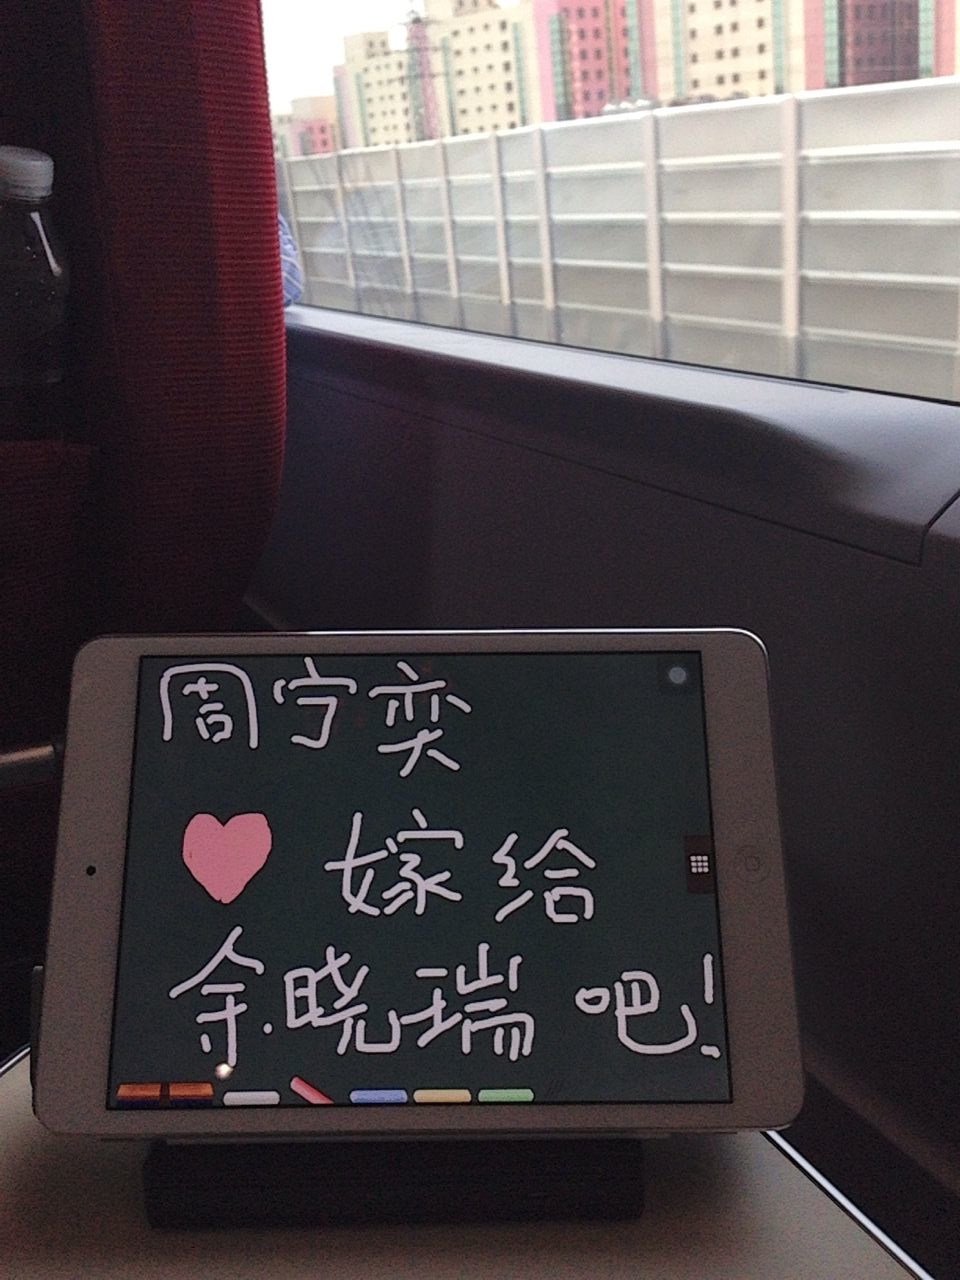 周宁奕
嫁给
余晓瑞吧!